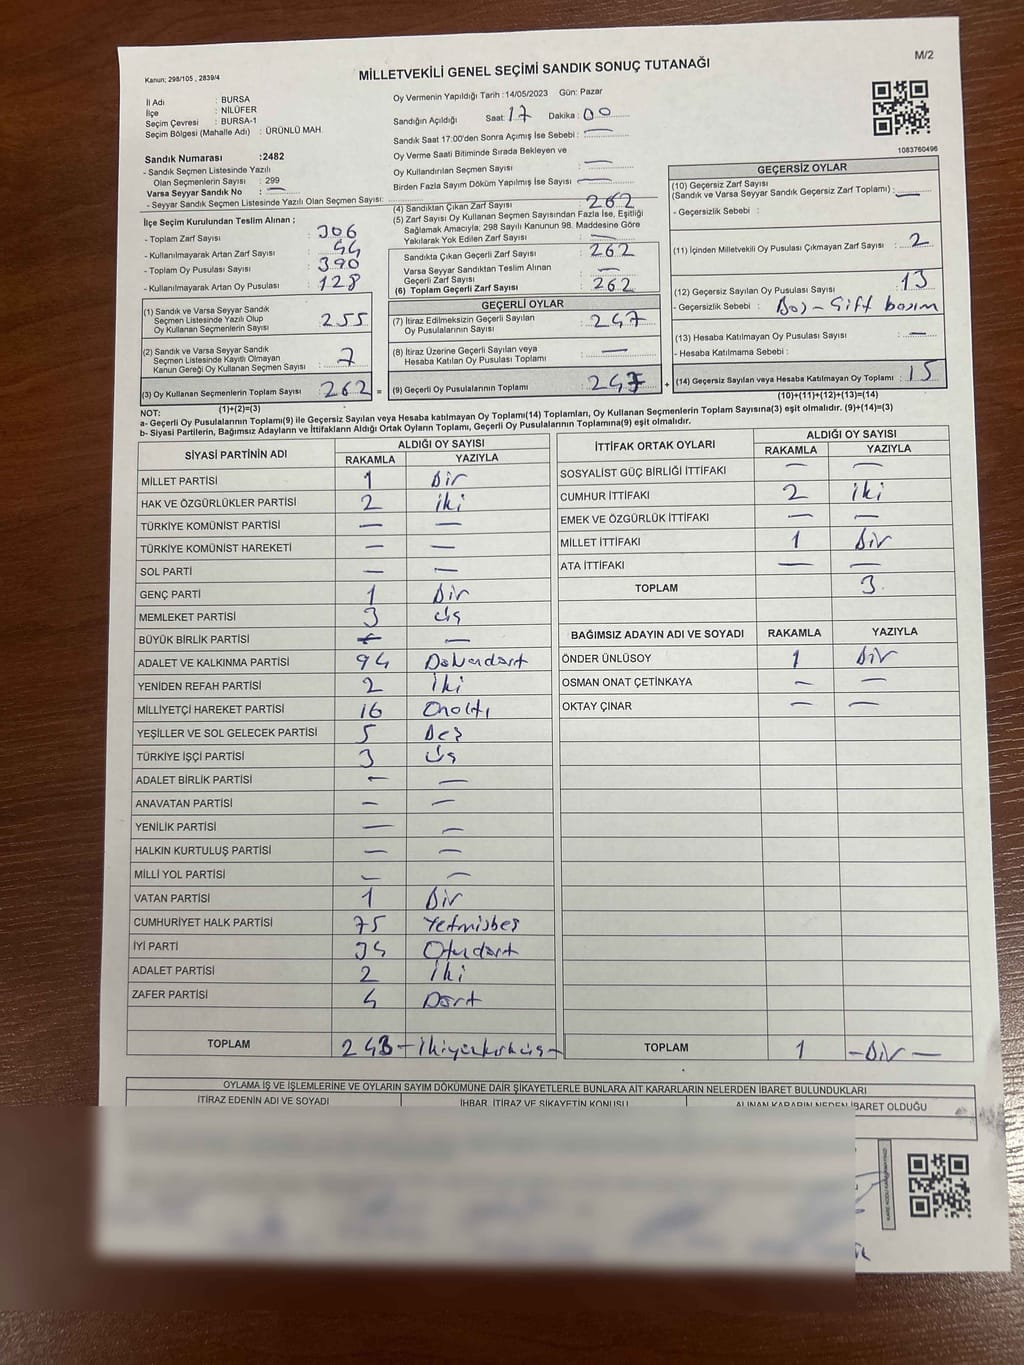 M/2
Kanun; 298/105 , 2839/4
MİLLETVEKİLİ GENEL SEÇİMİ SANDIK SONUÇ TUTANAĞI
İl Adı : BURSA
İlçe : NİLÜFER
Seçim Çevresi : BURSA-1
Seçim Bölgesi (Mahalle Adı) : ÜRÜNLÜ MAH.
Sandık Numarası :2482
- Sandık Seçmen Listesinde Yazılı
Olan Seçmenlerin Sayısı : 299
Varsa Seyyar Sandık No : —
- Seyyar Seçmen Listesinde Yazılı Olan Seçmen Sayısı:
Oy Vermenin Yapıldığı Tarih :14/05/2023 Gün: Pazar
Sandığın Açıldığı Saat: 17 Dakika : 00
Sandık Saat 17:00'den Sonra Açımış İse Sebebi : —
Oy Verme Saati Bitiminde Sırada Bekleyen ve
Oy Kullandırılan Seçmen Sayısı : —
Birden Fazla Sayım Döküm Yapılmış İse Sayısı : —
1083760496
İlçe Seçim Kurulundan Teslim Alınan ;
- Toplam Zarf Sayısı : 306
- Kullanılmayarak Artan Zarf Sayısı : 44
- Toplam Oy Pusulası Sayısı : 390
- Kullanılmayarak Artan Oy Pusulası : 128
(1) Sandık ve Varsa Seyyar Sandık
Seçmen Listesinde Yazılı Olup
Oy Kullanan Seçmenlerin Sayısı : 255
(2) Sandık ve Varsa Seyyar Sandık
Seçmen Listesinde Kayıtlı Olmayan
Kanun Gereği Oy Kullanan Seçmen Sayısı : 7
(3) Oy Kullanan Seçmenlerin Toplam Sayısı : 262 =
(1)+(2)=(3)
(4) Sandıktan Çıkan Zarf Sayısı : 262
(5) Zarf Sayısı Oy Kullanan Seçmen Sayısından Fazla İse, Eşitliği
Sağlamak Amacıyla; 298 Sayılı Kanunun 98. Maddesine Göre
Yakılarak Yok Edilen Zarf Sayısı : —
Sandıkta Çıkan Geçerli Zarf Sayısı : 262
Varsa Seyyar Sandıktan Teslim Alınan
Geçerli Zarf Sayısı : —
(6) Toplam Geçerli Zarf Sayısı : 262
GEÇERLİ OYLAR
(7) İtiraz Edilmeksizin Geçerli Sayılan
Oy Pusulalarının Sayısı : 247
(8) İtiraz Üzerine Geçerli Sayılan veya
Hesaba Katılan Oy Pusulası Toplamı : —
(9) Geçerli Oy Pusulalarının Toplamı : 247 +
GEÇERSİZ OYLAR
(10) Geçersiz Zarf Sayısı
(Sandık ve Varsa Seyyar Sandık Geçersiz Zarf Toplamı) : —
- Geçersizlik Sebebi :
(11) İçinden Milletvekili Oy Pusulası Çıkmayan Zarf Sayısı : 2
(12) Geçersiz Sayılan Oy Pusulası Sayısı : 13
- Geçersizlik Sebebi : Boş - Çift basım
(13) Hesaba Katılmayan Oy Pusulası Sayısı : —
- Hesaba Katılmama Sebebi :
(14) Geçersiz Sayılan veya Hesaba Katılmayan Oy Toplamı : 15
(10)+(11)+(12)+(13)=(14)
NOT:
a- Geçerli Oy Pusulasının Toplamı(9) ile Geçersiz Sayılan veya Hesaba katılmayan Oy Toplamı(14) Toplamları, Oy Kullanan Seçmenlerin Toplam Sayısına(3) eşit olmalıdır. (9)+(14)=(3)
b- Siyasi Partilerin, Bağımsız Adayların ve İttifakların Aldığı Oyların Toplamı, Geçerli Oy Pusulalarının Toplamına(9) eşit olmalıdır.
SİYASİ PARTİNİN ADI ALDIĞI OY SAYISI
RAKAMLA YAZIYLA
MİLLET PARTİSİ 1 Bir
HAK VE ÖZGÜRLÜKLER PARTİSİ 2 iki
TÜRKİYE KOMÜNİST PARTİSİ — —
TÜRKİYE KOMÜNİST HAREKETİ — —
SOL PARTİ — —
GENÇ PARTİ 1 Bir
MEMLEKET PARTİSİ 3 üç
BÜYÜK BİRLİK PARTİSİ — —
ADALET VE KALKINMA PARTİSİ 94 Doksandört
YENİDEN REFAH PARTİSİ 2 İki
MİLLİYETÇİ HAREKET PARTİSİ 16 Onaltı
YEŞİLLER VE SOL GELECEK PARTİSİ 5 Beş
TÜRKİYE İŞÇİ PARTİSİ 3 Üç
ADALET BİRLİK PARTİSİ — —
ANAVATAN PARTİSİ — —
YENİLİK PARTİSİ — —
HALKIN KURTULUŞ PARTİSİ — —
MİLLİ YOL PARTİSİ — —
VATAN PARTİSİ 1 Bir
CUMHURİYET HALK PARTİSİ 75 Yetmişbeş
İYİ PARTİ 34 Otuzdört
ADALET PARTİSİ 2 İki
ZAFER PARTİSİ 4 Dört
TOPLAM 243 - ikiyüzkırküç -
İTTİFAK ORTAK OYLARI ALDIĞI OY SAYISI
RAKAMLA YAZIYLA
SOSYALİST GÜÇ BİRLİĞİ İTTİFAKI — —
CUMHUR İTTİFAKI 2 iki
EMEK VE ÖZGÜRLÜK İTTİFAKI — —
MİLLET İTTİFAKI 1 Bir
ATA İTTİFAKI — —
TOPLAM 3
BAĞIMSIZ ADAYIN ADI VE SOYADI RAKAMLA YAZIYLA
ÖNDER ÜNLÜSOY 1 Bir
OSMAN ONAT ÇETİNKAYA — —
OKTAY ÇINAR — —
TOPLAM 1 - Bir -
OYLAMA İŞ VE İŞLEMLERİNE VE OYLARIN SAYIM DÖKÜMÜNE DAİR ŞİKAYETLERLE BUNLARA AİT KARARLARIN NELERDEN İBARET BULUNDUKLARI
İTİRAZ EDENİN ADI VE SOYADI İHBAR, İTİRAZ VE ŞİKAYETİN KONUSU ALINAN KARARIN NEDEN İBARET OLDUĞU